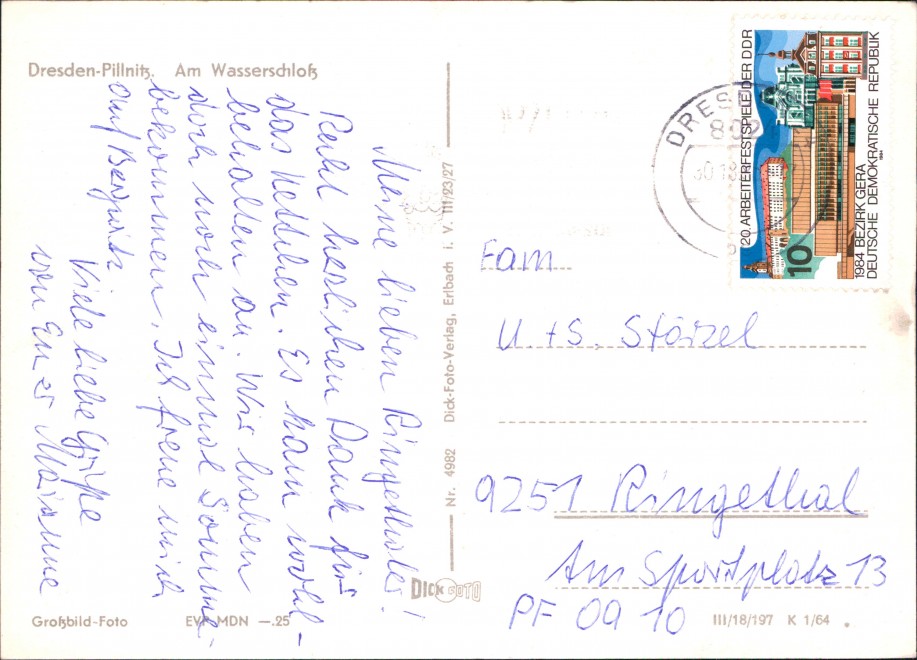 Dresden-Pillnitz. Am Wasserschloß
Meine lieben Ringethaler!
Recht herzlichen Dank für
das Kettchen. Es kam wohl-
behalten an. Wir haben
doch noch einmal Sonne
bekommen. Ich freue mich
auf
Viele liebe Grüße
von Eurer Marianne
Großbild-Foto
EVP MDN —.25
Nr. 4982 Dick-Foto-Verlag, Erlbach i. V. III/23/27
DICK FOTO
20. ARBEITERFESTSPIELE DER DDR
1984 BEZIRK GERA
DEUTSCHE DEMOKRATISCHE REPUBLIK
10
DRES
Fam.
U. + S. Störzel
9251 Ringethal
Am Sportplatz 13
PF 09 10
III/18/197 K 1/64